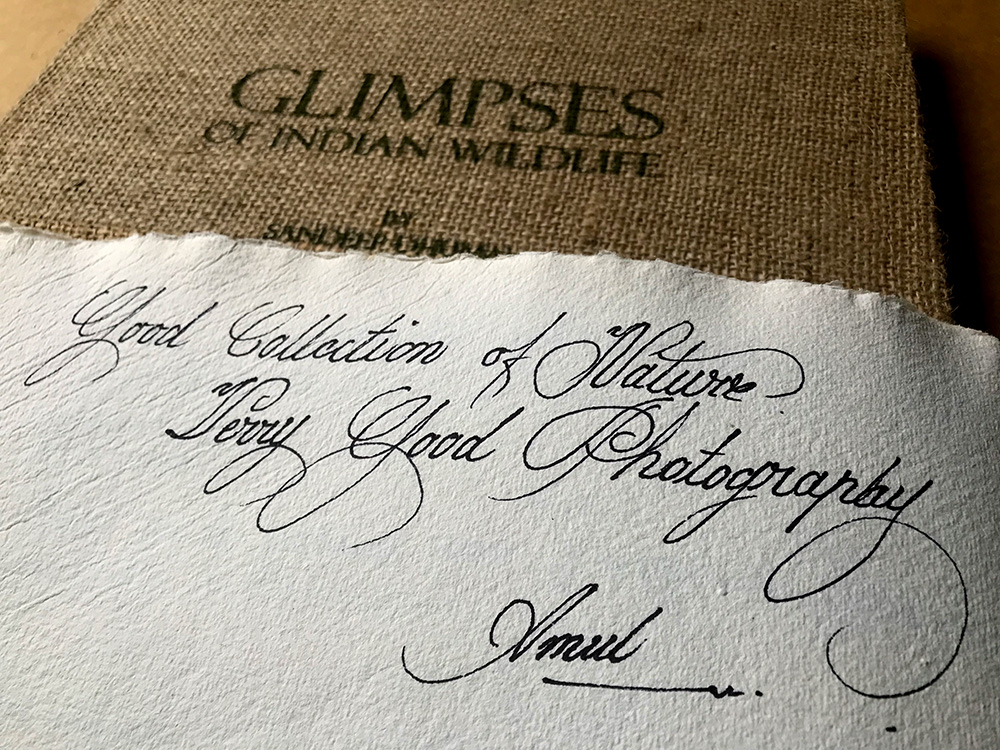 GLIMPSES
OF INDIAN WILDLIFE
BY
SANDEEP
Good Collection of Nature
Very Good Photography
Amul